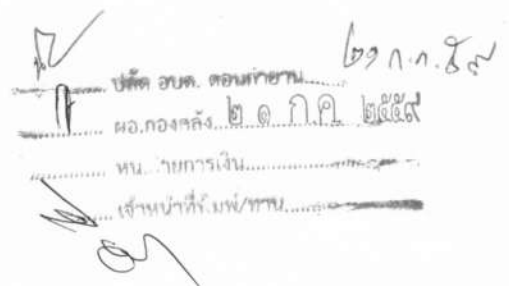 ๒๑ ก.ค. ๕๙
ปลัด อบต. ดอนกำยาน
ผอ.กองคลัง ๒๑ ก.ค. ๒๕๕๙
หน. ายการเงิน
เจ้าหน้าที่ พิมพ์/ทาน